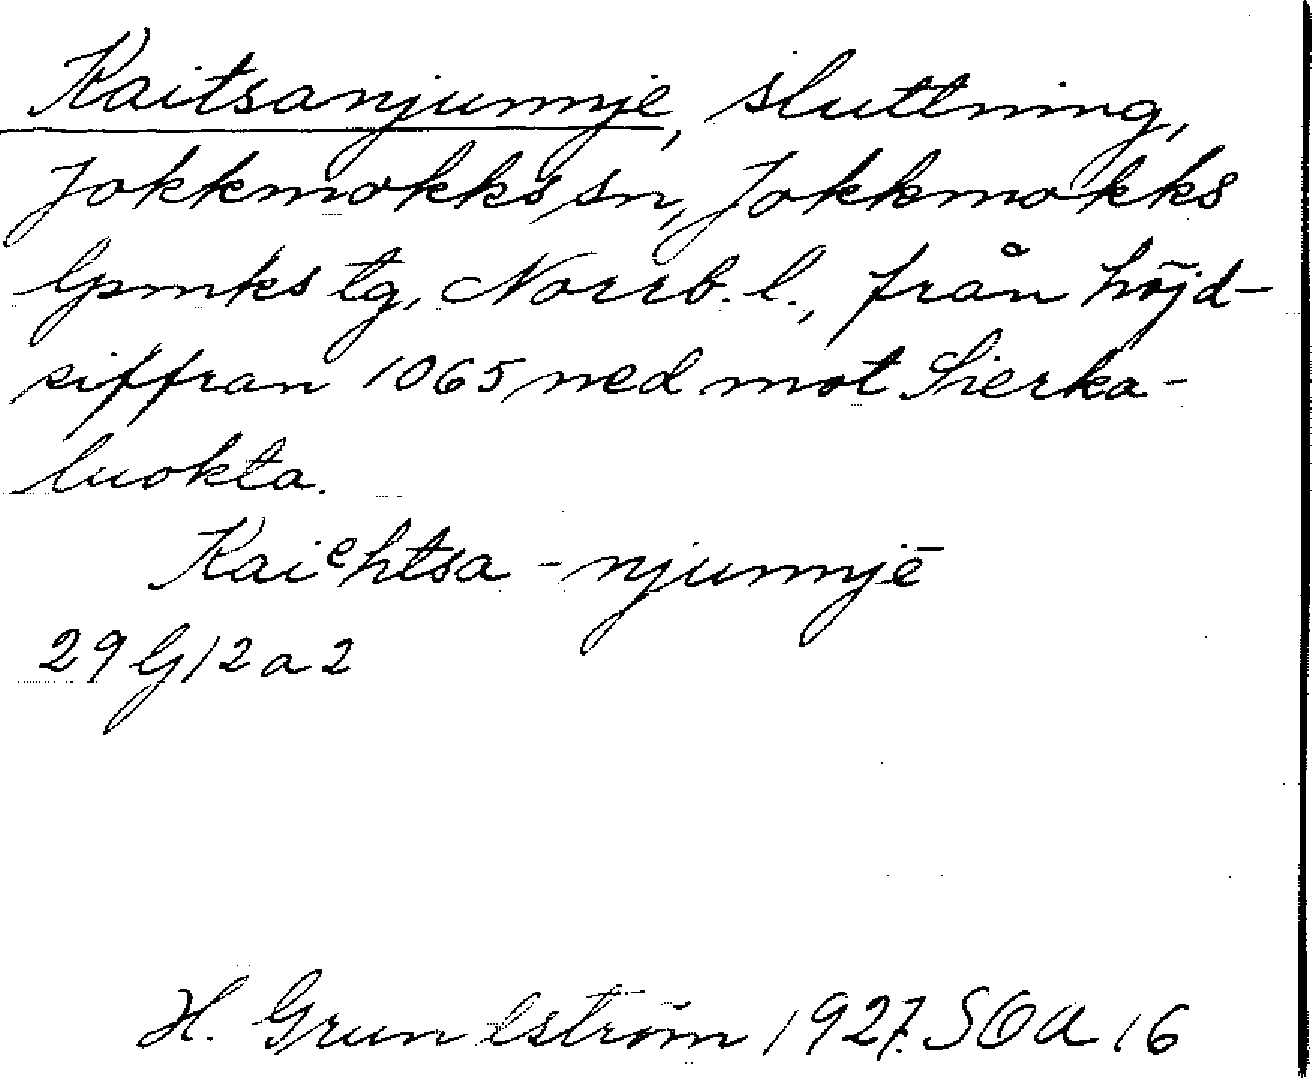 Kaitsanjunnje, sluttning,
Jokkmokks sn, Jokkmokks
lpmks tg, Norrb. l., från höjd-
siffran 1065 ned mot Sierka-
luokta.
Kaiᵉhtsa - njunnjē
29 G 12 a 2
H. Grundström 1927. SOA 16